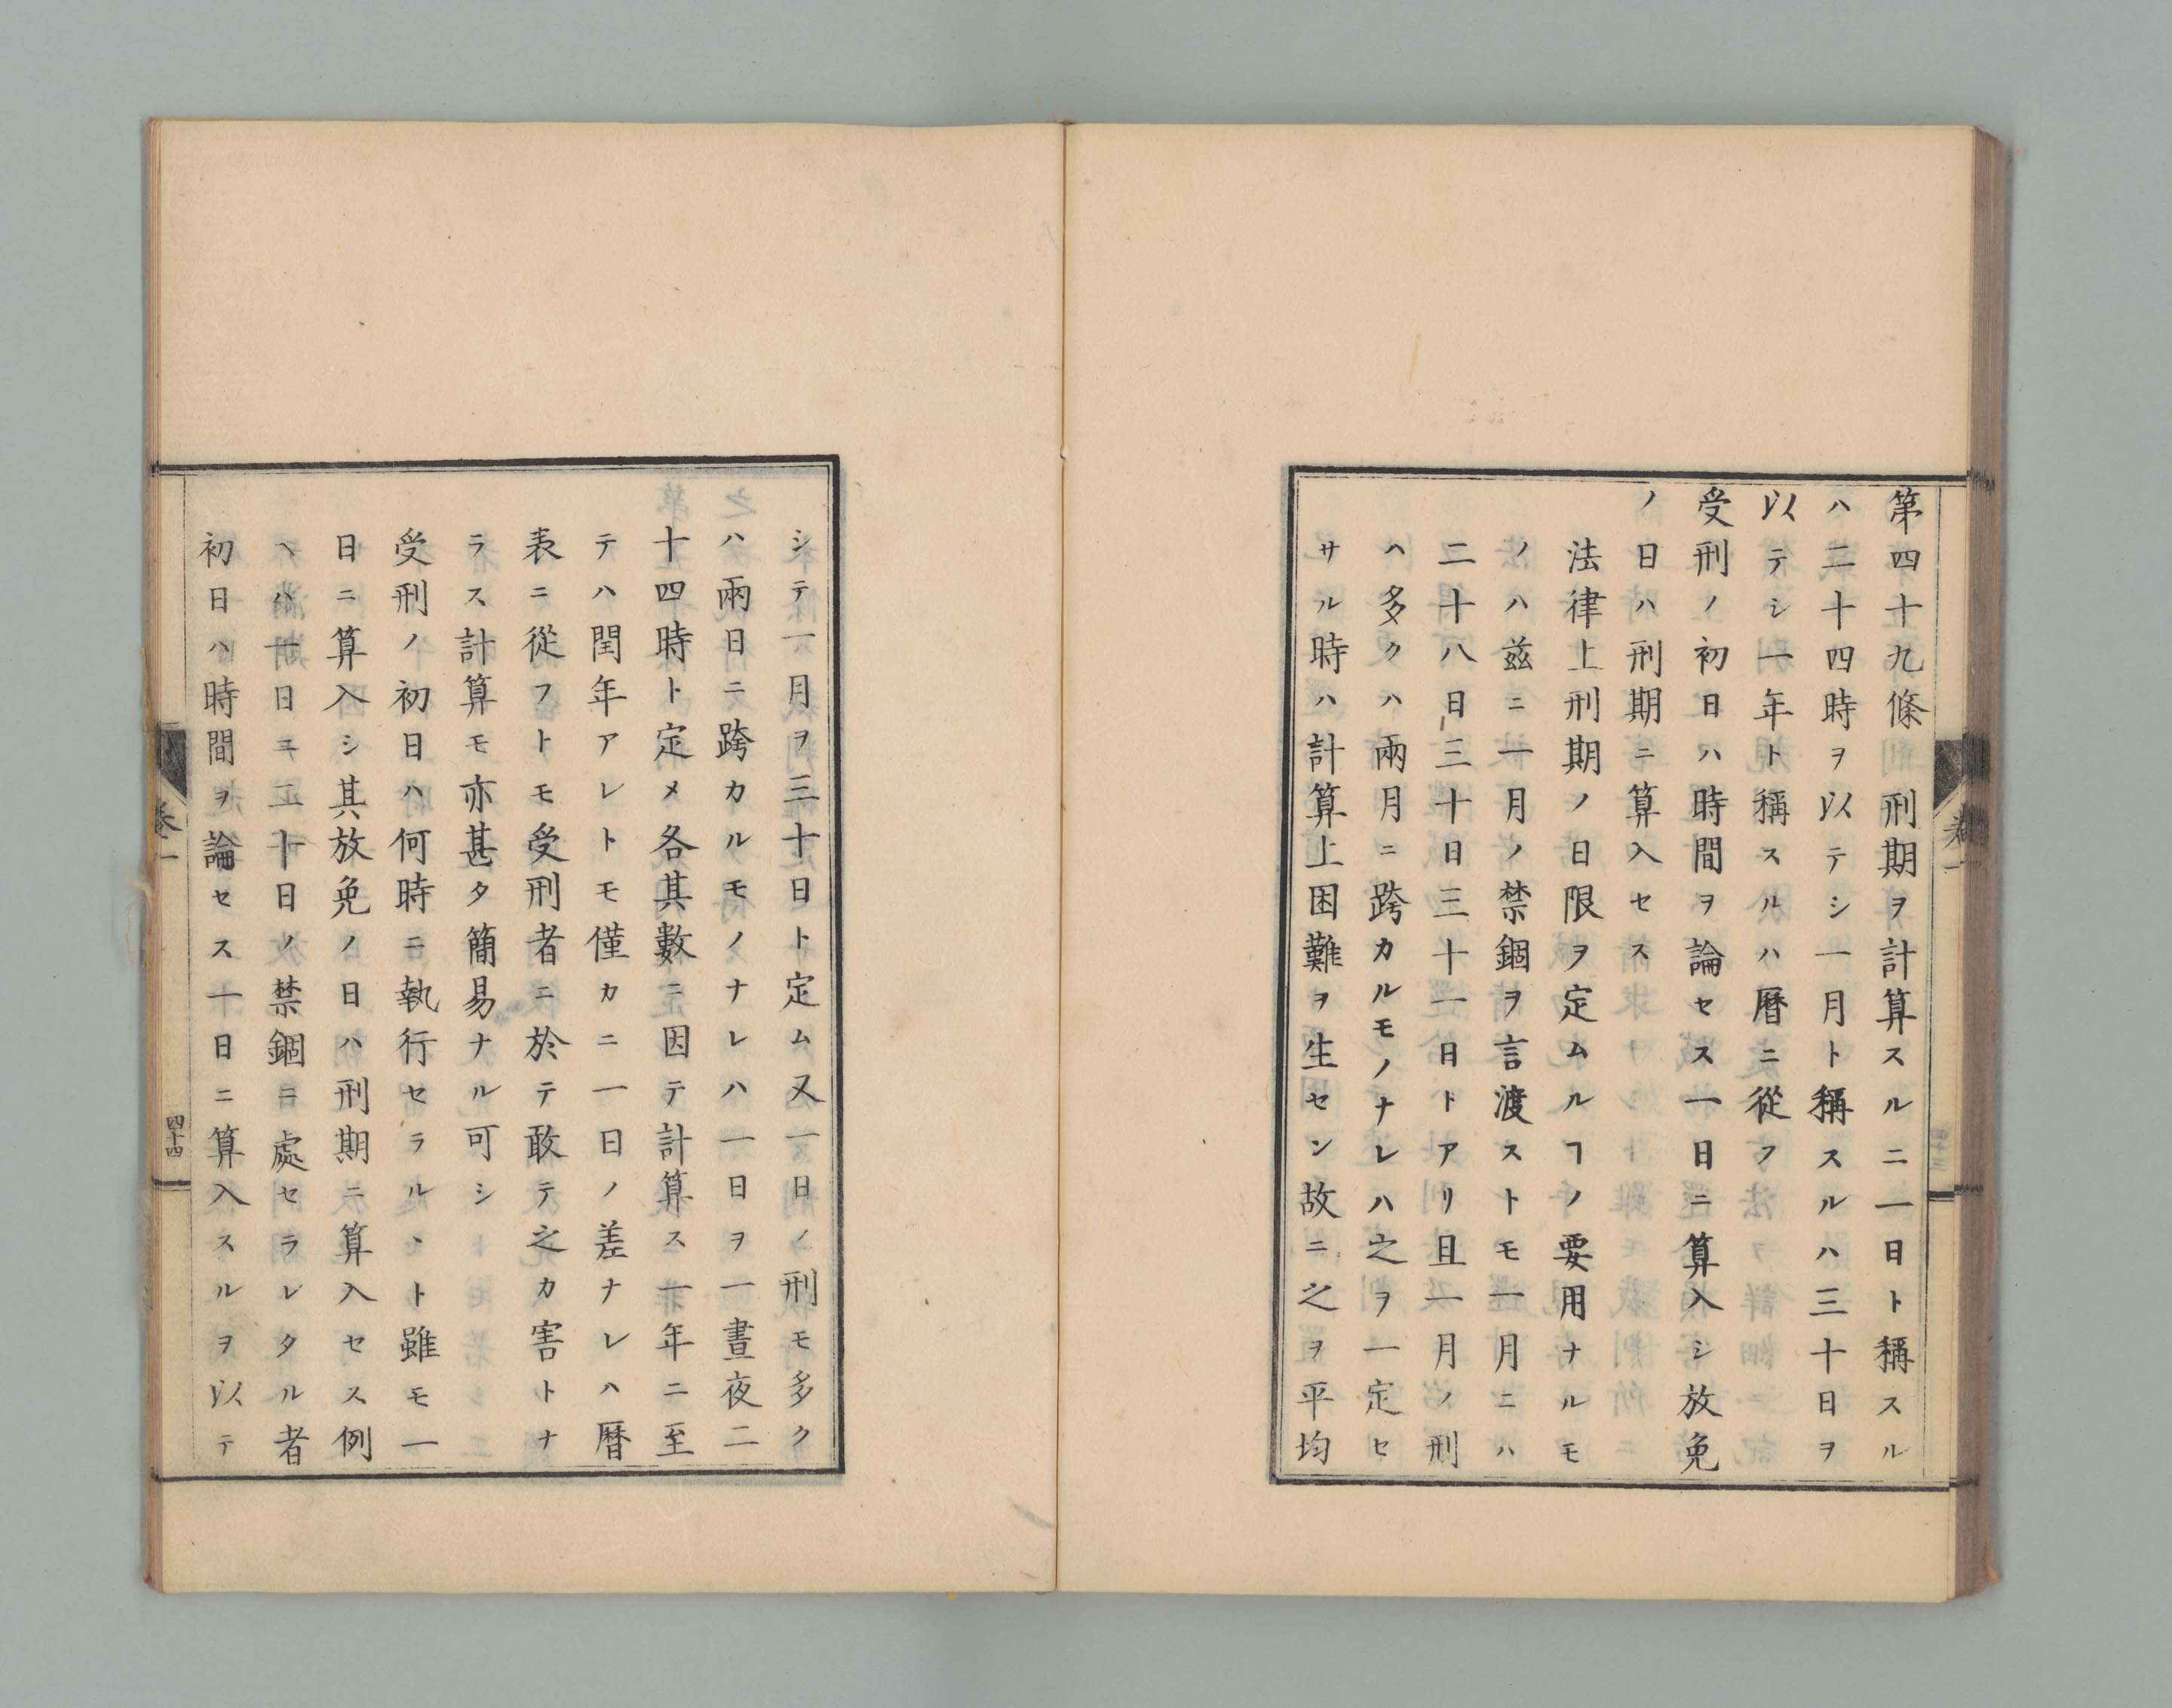 第四十九條　刑期ヲ計算スルニ一日ト稱スル
ハ二十四時ヲ以テシ一月ト稱スルハ三十日ヲ
以テシ一年ト稱スルハ曆ニ從フ
受刑ノ初日ハ時間ヲ論セス一日ニ算入シ放免
ノ日ハ刑期ニ算入セス
法律上刑期ノ日限ヲ定ムルヿノ要用ナルモ
ノハ茲ニ一月ノ禁錮ヲ言渡ストモ一月ニハ
二十八日三十日三十一日トアリ且一月ノ刑
ハ多クハ兩月ニ跨カルモノナレハ之ヲ一定セ
サル時ハ計算上困難ヲ生セン故ニ之ヲ平均
卷一
シテ一月ヲ三十日ト定ム又一日ノ刑モ多ク
ハ兩日ニ跨カルモノナレハ一日ヲ一晝夜二
十四時ト定メ各其數ニ因テ計算ス一年ニ至
テハ閏年アレトモ僅カニ一日ノ差ナレハ曆
表ニ從フトモ受刑者ニ於テ敢テ之カ害トナ
ラス計算モ亦甚タ簡易ナル可シ
受刑ノ初日ハ何時ニ執行セラル丶ト雖モ一
日ニ算入シ其放免ノ日ハ刑期ニ算入セス例
ヘハ一日ヨリ十日ノ禁錮ニ處セラレタル者
初日ハ時間ヲ論セス一日ニ算入スルヲ以テ
卷一
四十四